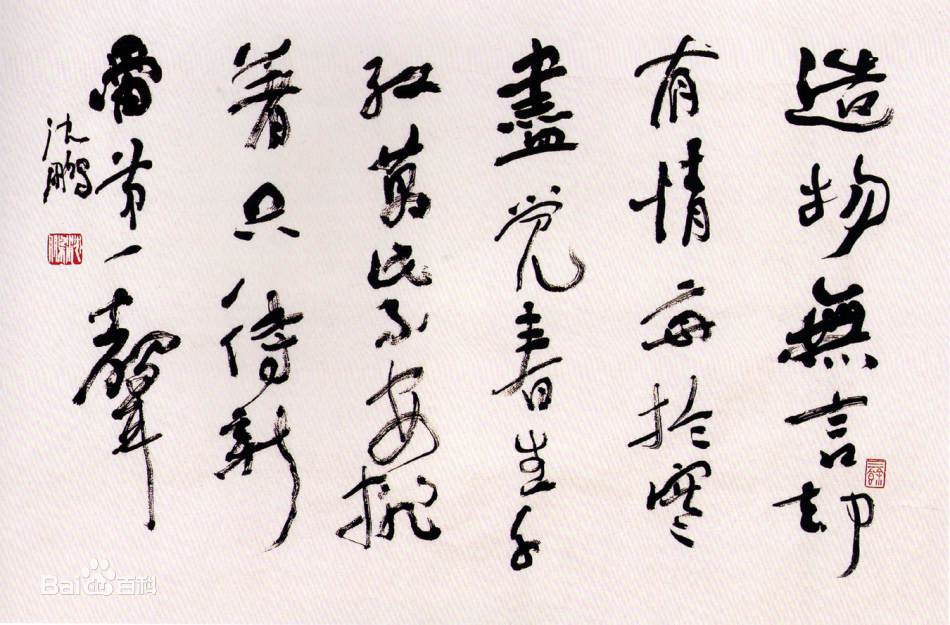 造物無言却
有情每於寒
盡覺春生千
紅萬紫安排
著只待新
雷第一聲
沈鵬
Bai百科